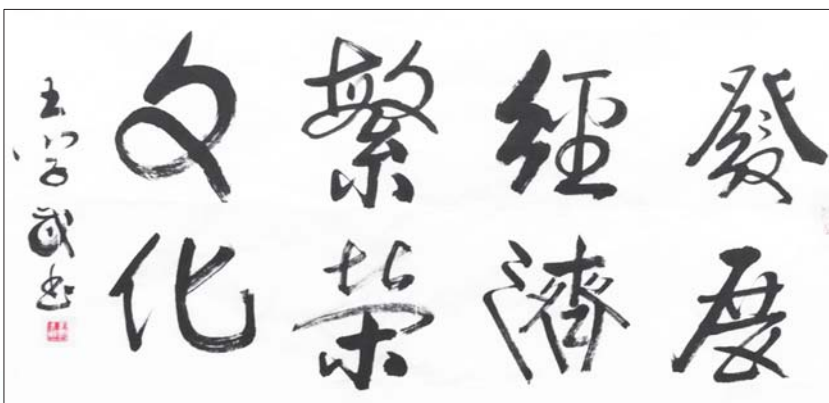 發展
經濟
繁榮
文化
王學武书